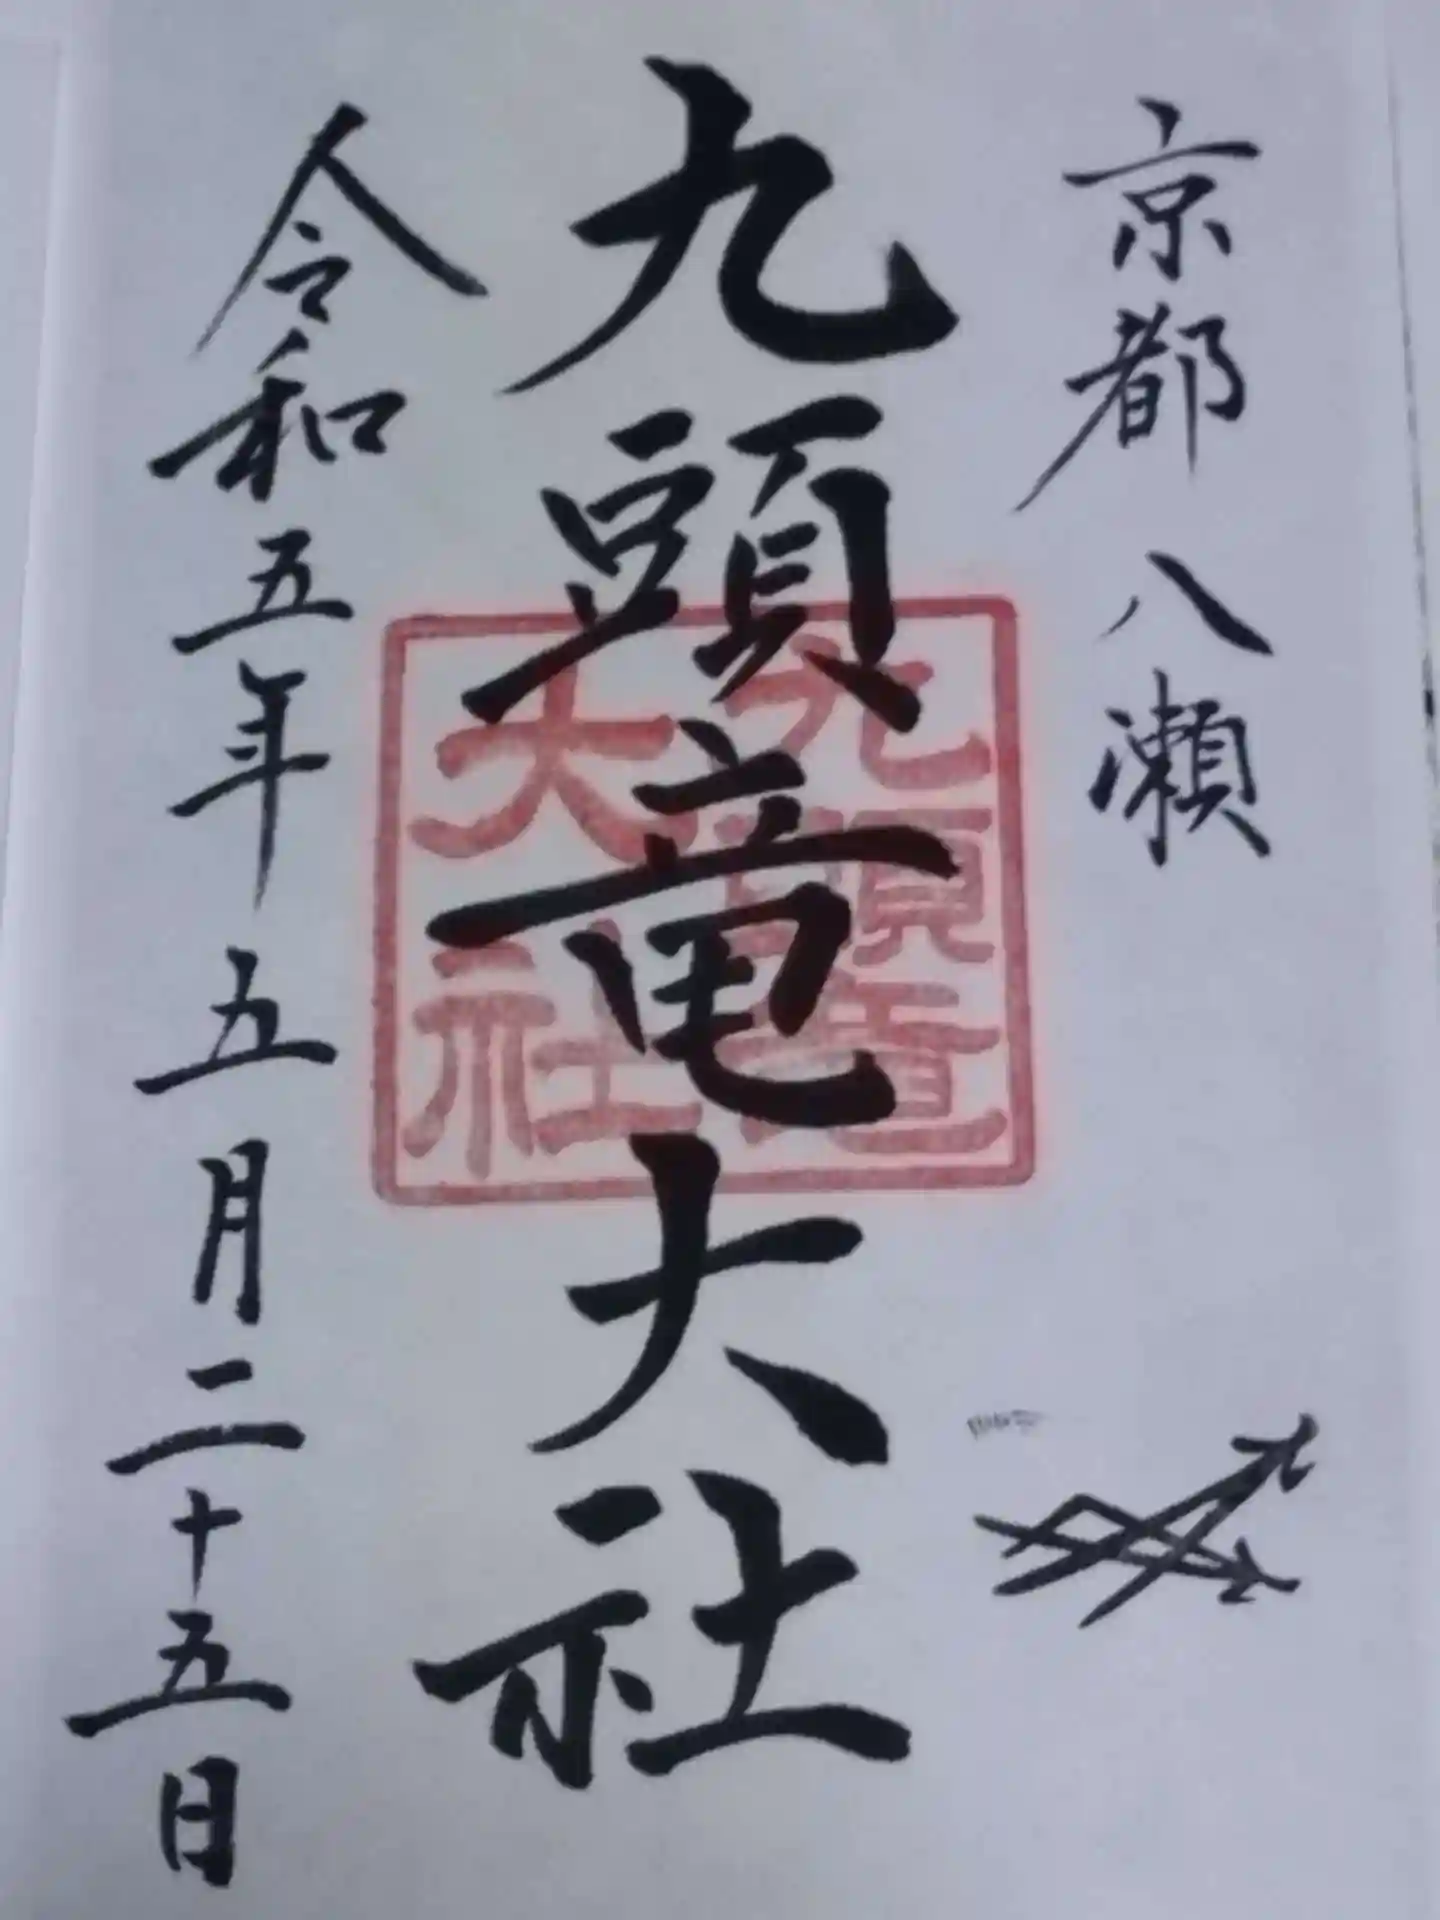 京都 八瀬
九頭竜大社
九頭竜
大社
令和五年五月二十五日